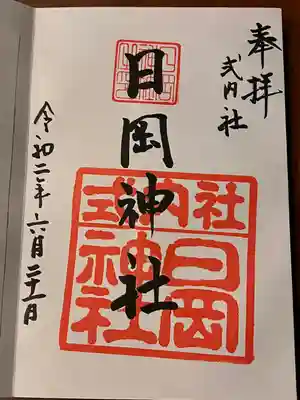 奉拝
式内社
日岡神社
式内社
日岡
神社
令和二年六月二十一日